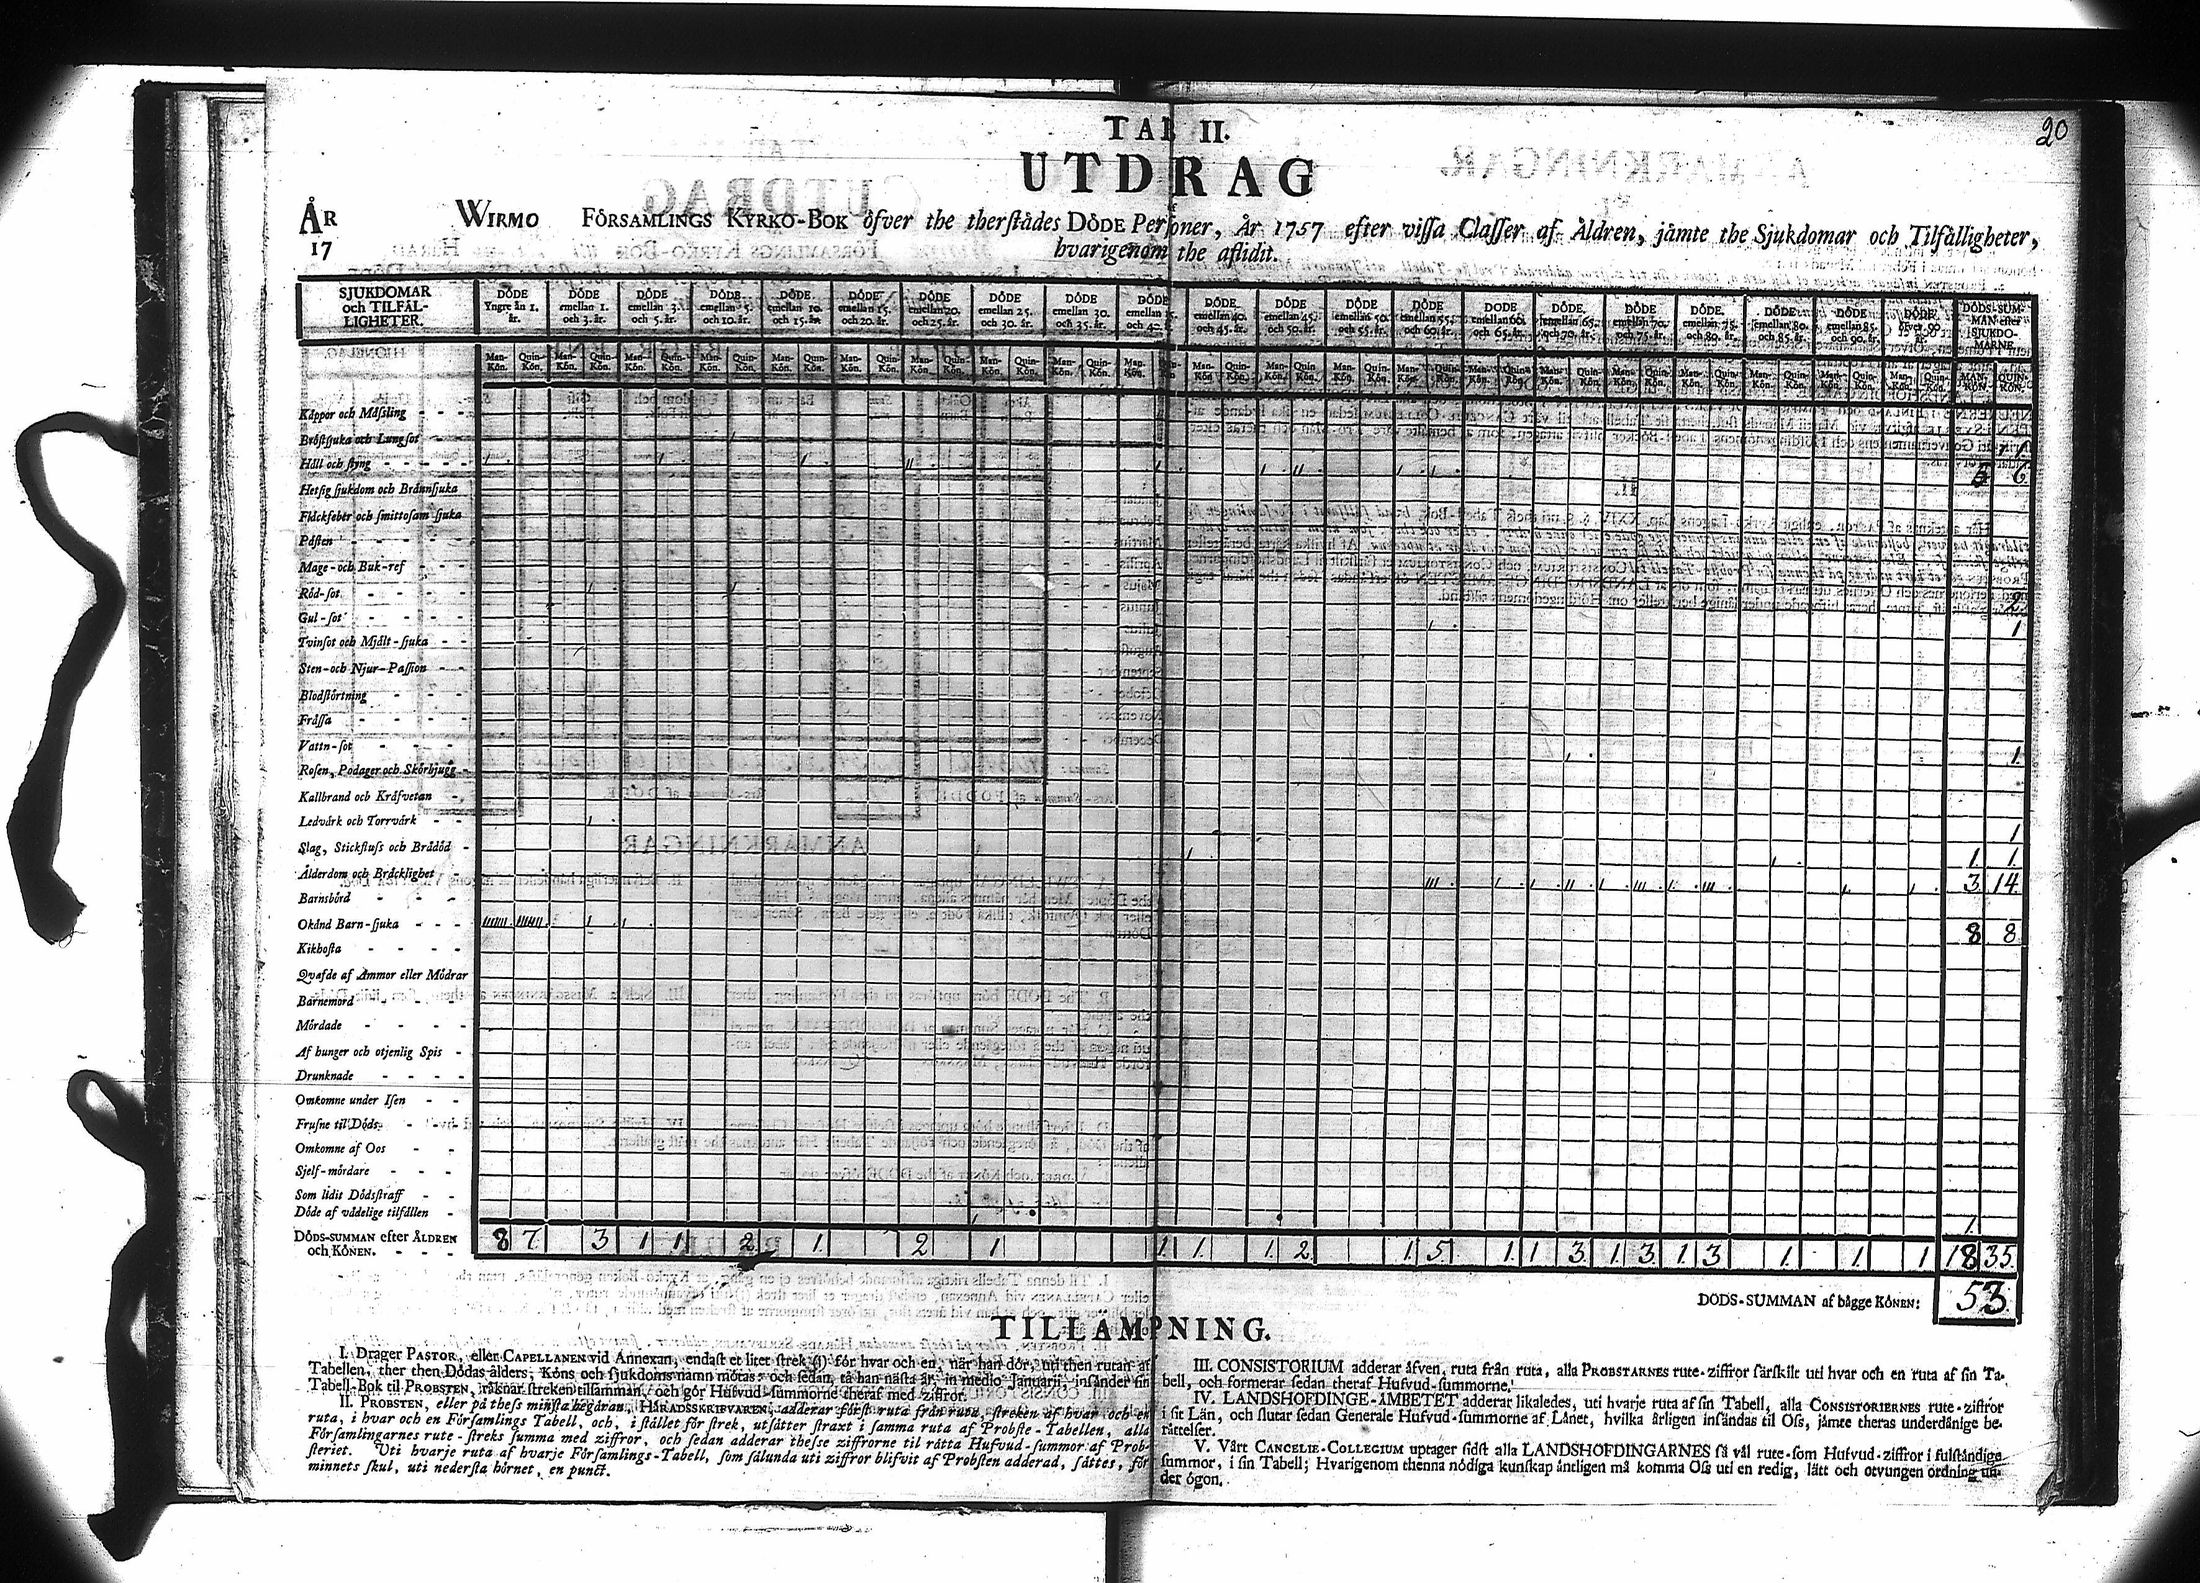 20
TAB II.
UTDRAG
ÅR WIRMO FÖRSAMLINGS KYRKO-BOK öfver the therstädes DÖDE Personer, År 1757 efter vissa Classer af Åldren, jämte the Sjukdomar och Tilfälligheter,
17 hvarigenom the aflidit.
SJUKDOMAR och TILFÄL-LIGHETER. DÖDE Yngre än 1. år. DÖDE emellan 1. och 3. år. DÖDE emellan 3. och 5. år. DÖDE emellan 5. och 10. år. DÖDE emellan 10. och 15. år. DÖDE emellan 15. och 20. år. DÖDE emellan 20. och 25. år. DÖDE emellan 25. och 30. år. DÖDE emellan 30. och 35. år. DÖDE emellan DÖDE emellan 40. och 45. år. DÖDE emellan 45. och 50. år. DÖDE emellan 50. och 55. år. DÖDE emellan 55. och 60. år. DÖDE emellan 60. och 65. år. DÖDE emellan 65. och 70. år. DÖDE emellan 70. och 75. år. DÖDE emellan 75. och 80. år. DÖDE emellan 80. och 85. år. DÖDE emellan 85. och 90. år. DÖDE öfver 90. år. DÖDS-SUMMAN efter SJUKDOMARNE.
Koppor och Mässling
Bröstsjuka och Lungsot 1
Håll och styng 5 6
Hetsig sjukdom och Brännsjuka
Fläckfeber och smittosam sjuka
Pästen
Mage-och Buk-ref
Röd-sot 2
Gul-sot 1
Tvinsot och Mjält-sjuka
Sten-och Njur-Passion
Blodstörtning
Frässa
Vattn-sot 1
Rosen, Podager och Skörbjugg
Kallbrand och Kräfvetan
Ledvärk och Torrvärk 1
Slag, Stickfluss och Brådöd 1. 1.
Ålderdom och Bräcklighet 3. 14
Barnsbörd
Okänd Barn-sjuka 8 8
Kikhosta
Qvafde af Ammor eller Mödrar
Barnemord
Mördade
Af hunger och otjenlig Spis
Drunknade
Omkomne under Isen
Frusne til Döds
Omkomne af Oos
Sjelf-mördare
Som lidit Dödsstraff
Döde af vådelige tilfällen 1.
DÖDS-SUMMAN efter ÅLDREN och KÖNEN. 8 7 3 1 1 2 1. 2 1 1 1. 1. 2. 1. 5. 1. 1 3. 1. 3 1. 3 1. 1. 1 18 35.
DÖDS-SUMMAN af bägge KÖNEN: 53
TILLÄMPNING.
I. Drager PASTOR, eller CAPELLANEN vid Annexan, endast et litet strek (I) för hvar och en, när han dör, uti then rutan af
Tabellen, ther then Dödas ålders, Köns och sjukdoms namn mötas: och sedan, tå han nästa år, in medio Januarii, insänder sin
Tabell-Bok til PROBSTEN, räknar streken tillsamman, och gör Hufvud-summorne theraf med ziffror.
II. PROBSTEN, eller på thess minsta begäran, HÄRADSSKRIFVAREN, adderar först ruta från ruta, streken af hvar och en
ruta, i hvar och en Församlings Tabell, och, i stället för strek, utsätter straxt i samma ruta af Probste-Tabellen, alla
Församlingarnes rute-streks summa med ziffror, och sedan adderar thesse ziffrorne til rätta Hufvud-summor af Prob-
steriet. Uti hvarje ruta af hvarje Församlings-Tabell, som sålunda uti ziffror blifvit af Probsten adderad, sättes, för
minnets skul, uti nedersta hörnet, en punct.
III. CONSISTORIUM adderar äfven, ruta från ruta, alla PROBSTARNES rute-ziffror särskilt uti hvar och en ruta af sin Ta-
bell, och formerar sedan theraf Hufvud-summorne.
IV. LANDSHÖFDINGE-ÄMBETET adderar likaledes, uti hvarje ruta af sin Tabell, alla CONSISTORIERNES rute-ziffror
i sit Län, och slutar sedan Generale Hufvud-summorne af Länet, hvilka årligen insändas til Oss, jämte theras underdånige be-
rättelser.
V. Vårt CANCELIE-COLLEGIUM uptager sidst alla LANDSHÖFDINGARNES så väl rute-som Hufvud-ziffror i fulständiga
summor, i sin Tabell; Hvarigenom thenna nödiga kunskap äntligen må komma Oss uti en redig, lätt och otvungen ordning un-
der ögon.